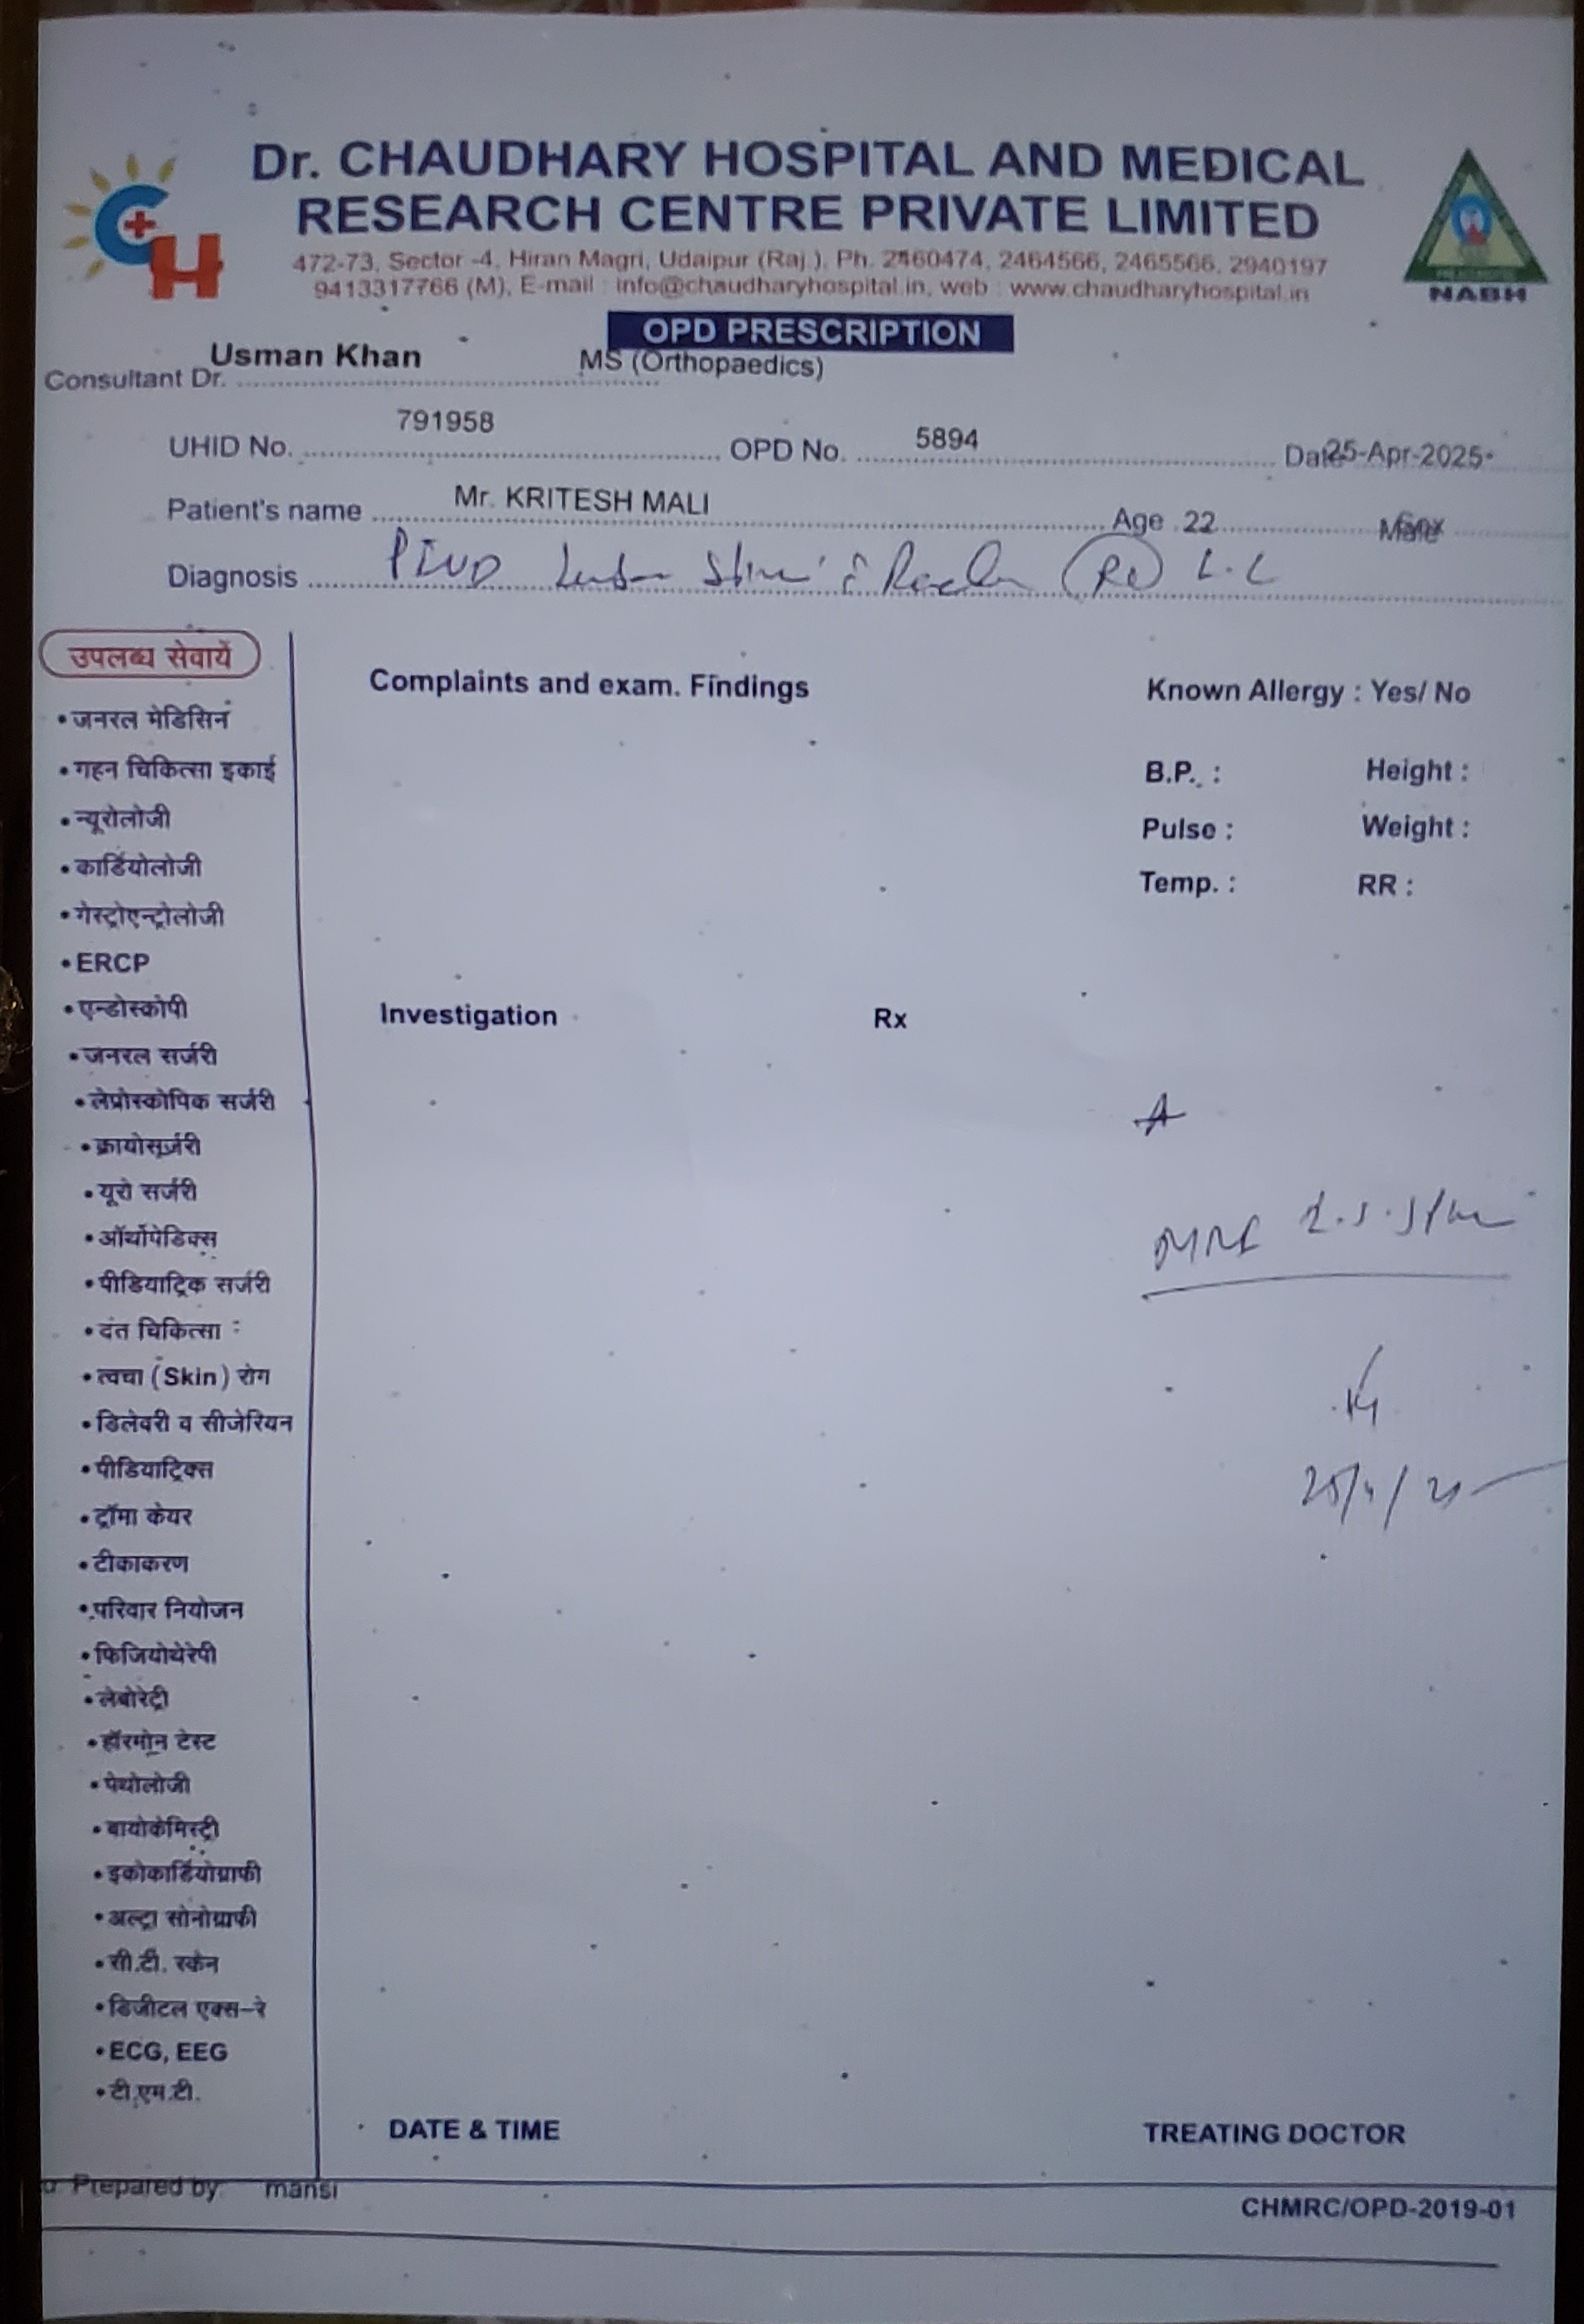 Dr. CHAUDHARY HOSPITAL AND MEDICAL
RESEARCH CENTRE PRIVATE LIMITED
472-73, Sector -4, Hiran Magri, Udaipur (Raj.), Ph. 2460474, 2464566, 2465566, 2940197
9413317766 (M), E-mail : info@chaudharyhospital.in, web : www.chaudharyhospital.in
NABH
OPD PRESCRIPTION
Consultant Dr. Usman Khan MS (Orthopaedics)
UHID No. 791958 OPD No. 5894 Date 25-Apr-2025
Patient's name Mr. KRITESH MALI Age 22 Sex Male
Diagnosis PIVD
उपलब्ध सेवायें
Complaints and exam. Findings
Known Allergy : Yes/ No
B.P. : Height :
Pulse : Weight :
Temp. : RR :
Investigation Rx
MRI L.S. Spine
25/4/25
• जनरल मेडिसिन
• गहन चिकित्सा इकाई
• न्यूरोलोजी
• कार्डियोलोजी
• गेस्ट्रोएन्ट्रोलोजी
• ERCP
• एन्डोस्कोपी
• जनरल सर्जरी
• लेप्रोस्कोपिक सर्जरी
• क्रायोसर्जरी
• यूरो सर्जरी
• ऑर्थोपेडिक्स
• पीडियाट्रिक सर्जरी
• दंत चिकित्सा
• त्वचा (Skin) रोग
• डिलेवरी व सीजेरियन
• पीडियाट्रिक्स
• ट्रॉमा केयर
• टीकाकरण
• परिवार नियोजन
• फिजियोथेरेपी
• लेबोरेट्री
• हॉरमोन टेस्ट
• पेथोलोजी
• बायोकेमिस्ट्री
• इकोकार्डियोग्राफी
• अल्ट्रा सोनोग्राफी
• सी.टी. स्केन
• डिजीटल एक्स-रे
• ECG, EEG
• टी.एम.टी.
DATE & TIME TREATING DOCTOR
Prepared by: mansi
CHMRC/OPD-2019-01